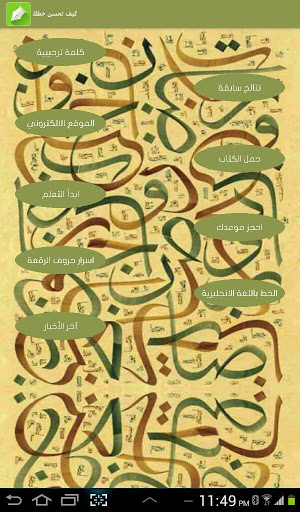 كيف تحسن خطك
كلمة ترحيبية
نتائج سابقة
الموقع الالكتروني
حمل الكتاب
ابدأ التعلم
احجز موعدك
اسرار حروف الرقعة
الخط باللغة الانجليزية
آخر الأخبار
11:49 PM